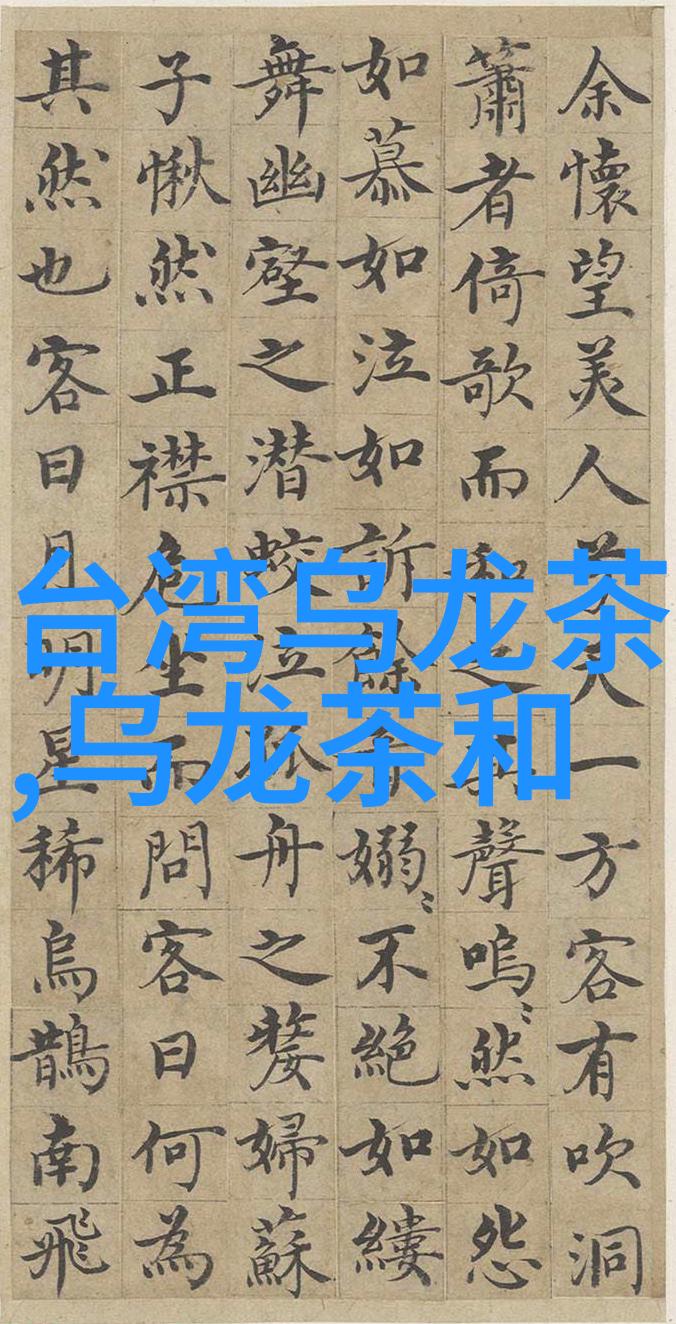 余懷望美人兮天一方客有吹洞
簫者倚歌而和之其聲嗚〻然如怨
如慕如泣如訴餘音嫋〻不絶如縷
舞幽壑之潜蛟泣孤舟之嫠婦蘇
子愀然正襟危坐而問客曰何為
其然也客曰月明星稀烏鵲南飛
台湾乌龙茶
,乌龙茶和